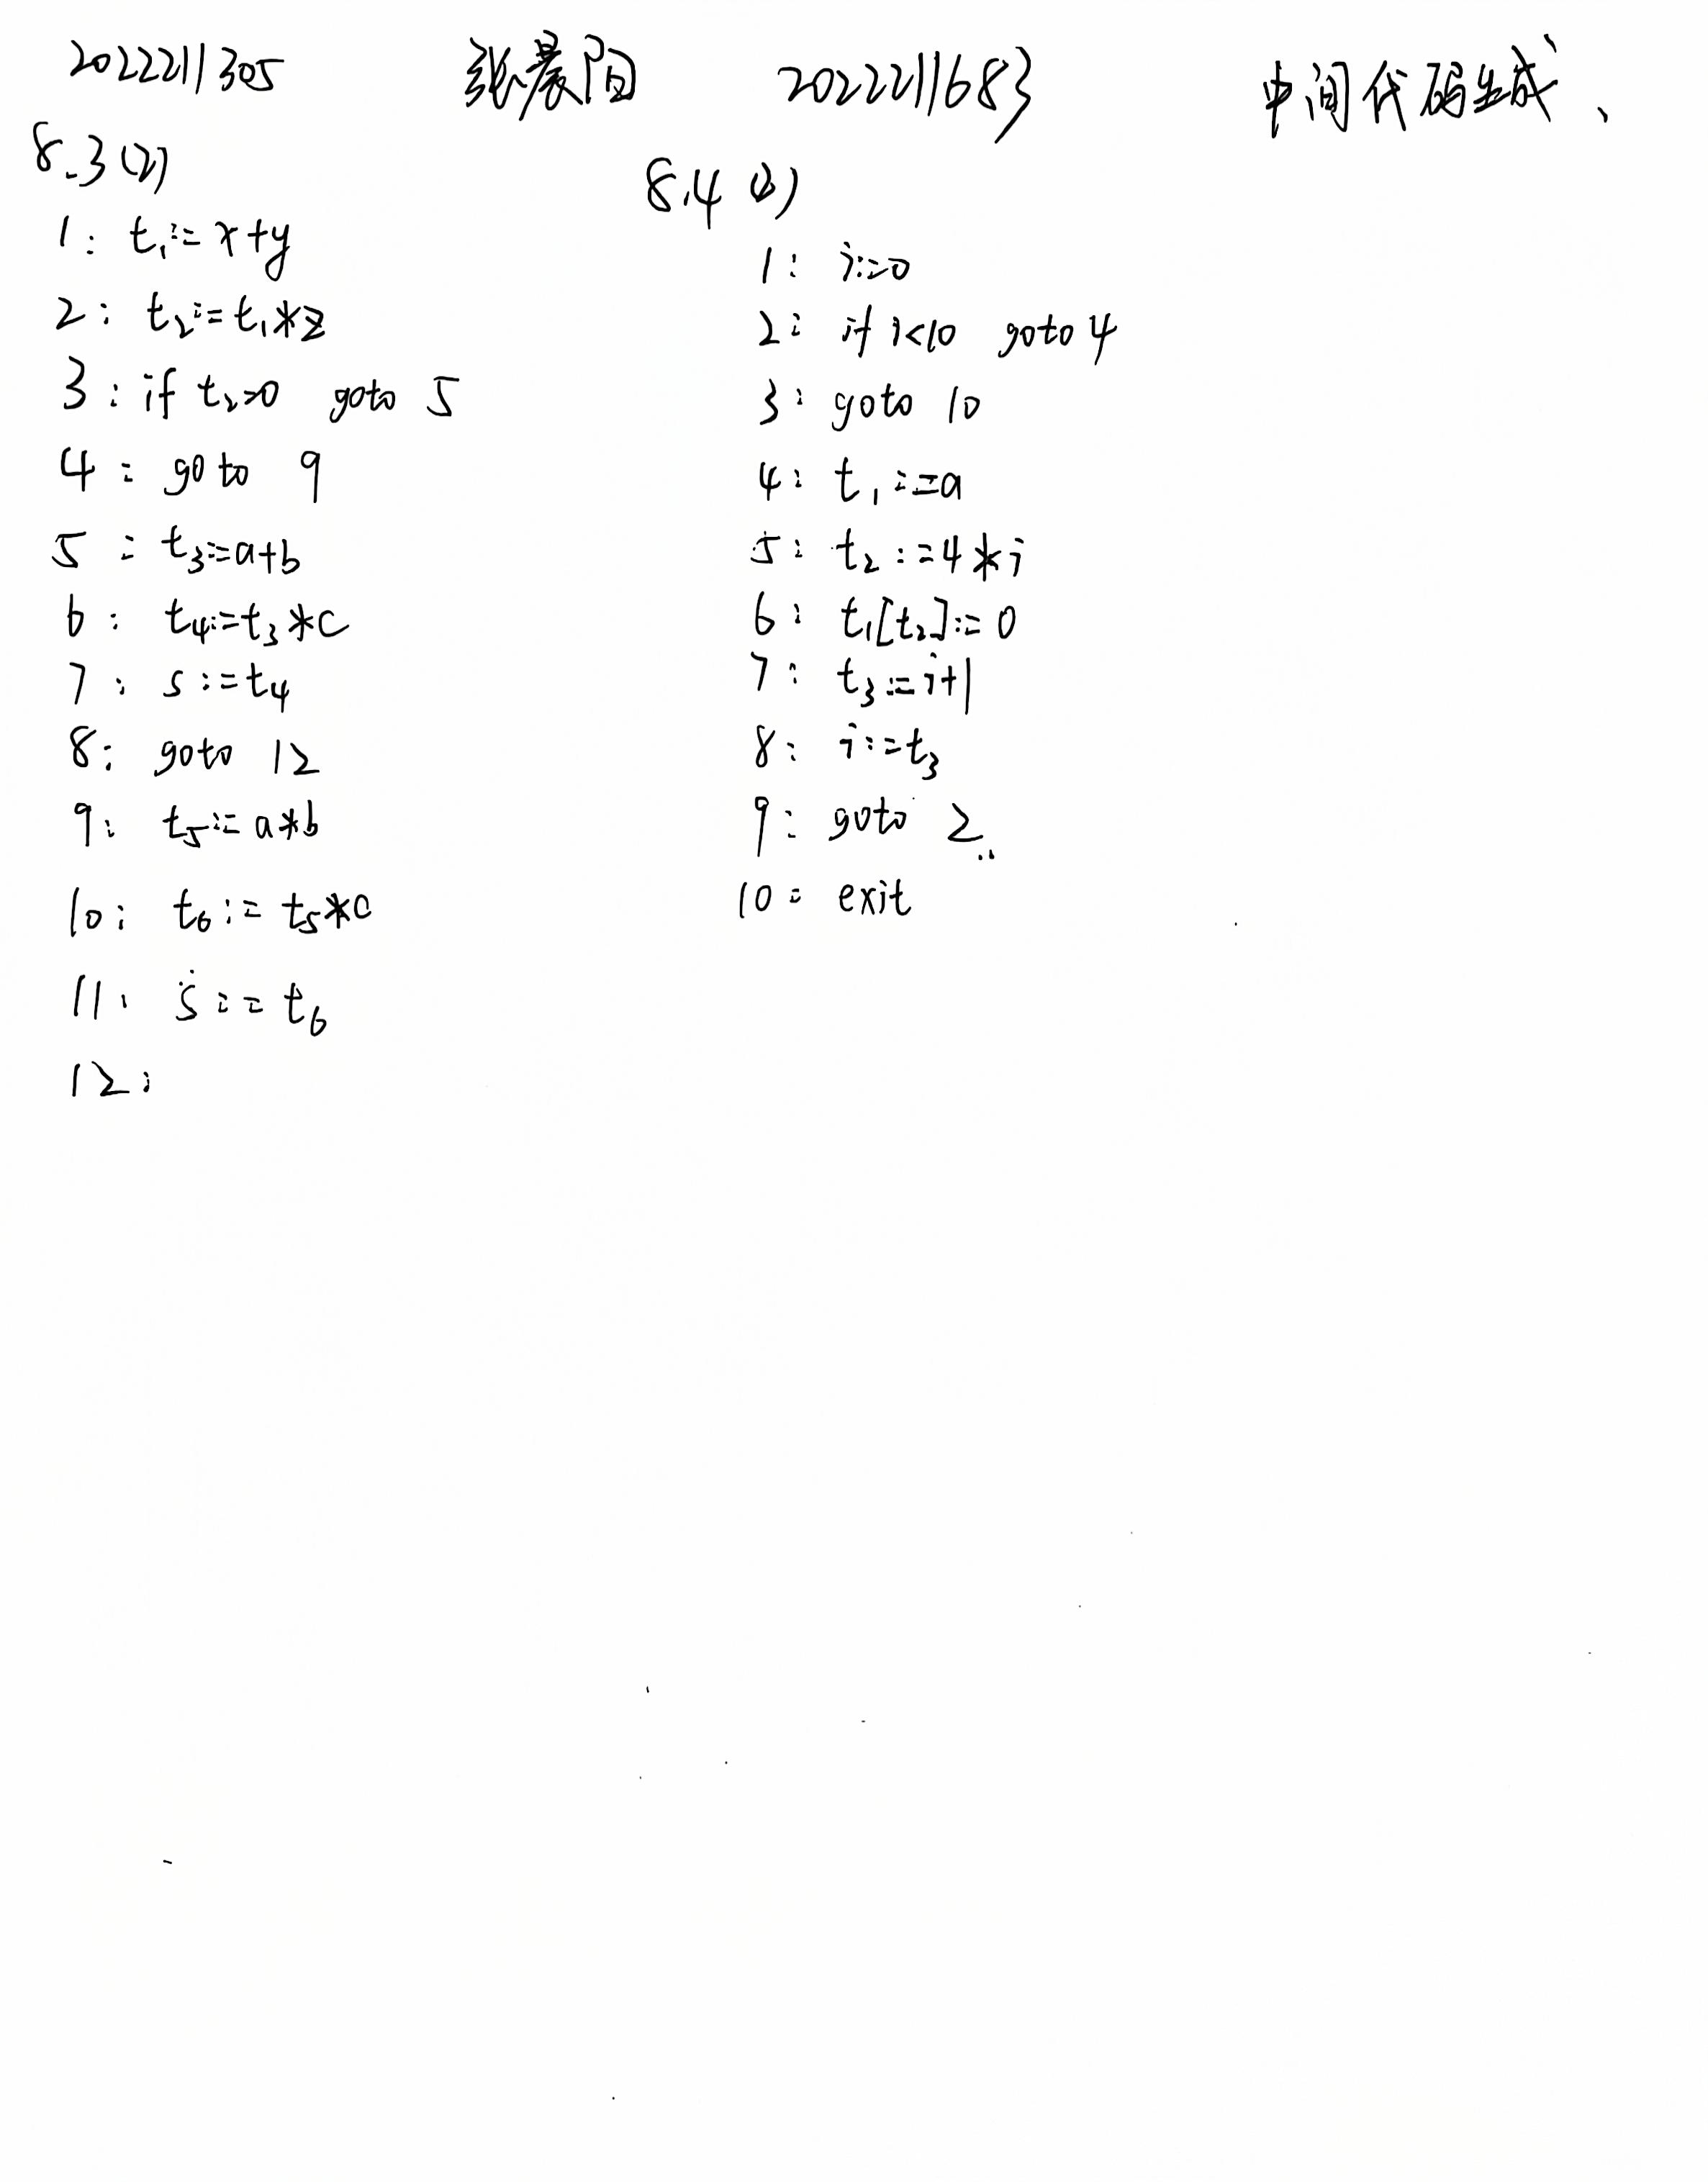 2022211305 张晨阳 2022211683 中间代码生成、
8.3(2)
1: t₁:=x+y
2: t₂:=t₁*z
3: if t₂>0 goto 5
4: goto 9
5: t₃:=a+b
6: t₄:=t₃*c
7: s:=t₄
8: goto 12
9: t₅:=a*b
10: t₆:=t₅*c
11: s:=t₆
12:
8.4 (2)
1: i:=0
2: if i<10 goto 4
3: goto 10
4: t₁:=a
5: t₂:=4*i
6: t₁[t₂]:=0
7: t₃:=i+1
8: i:=t₃
9: goto 2
10: exit